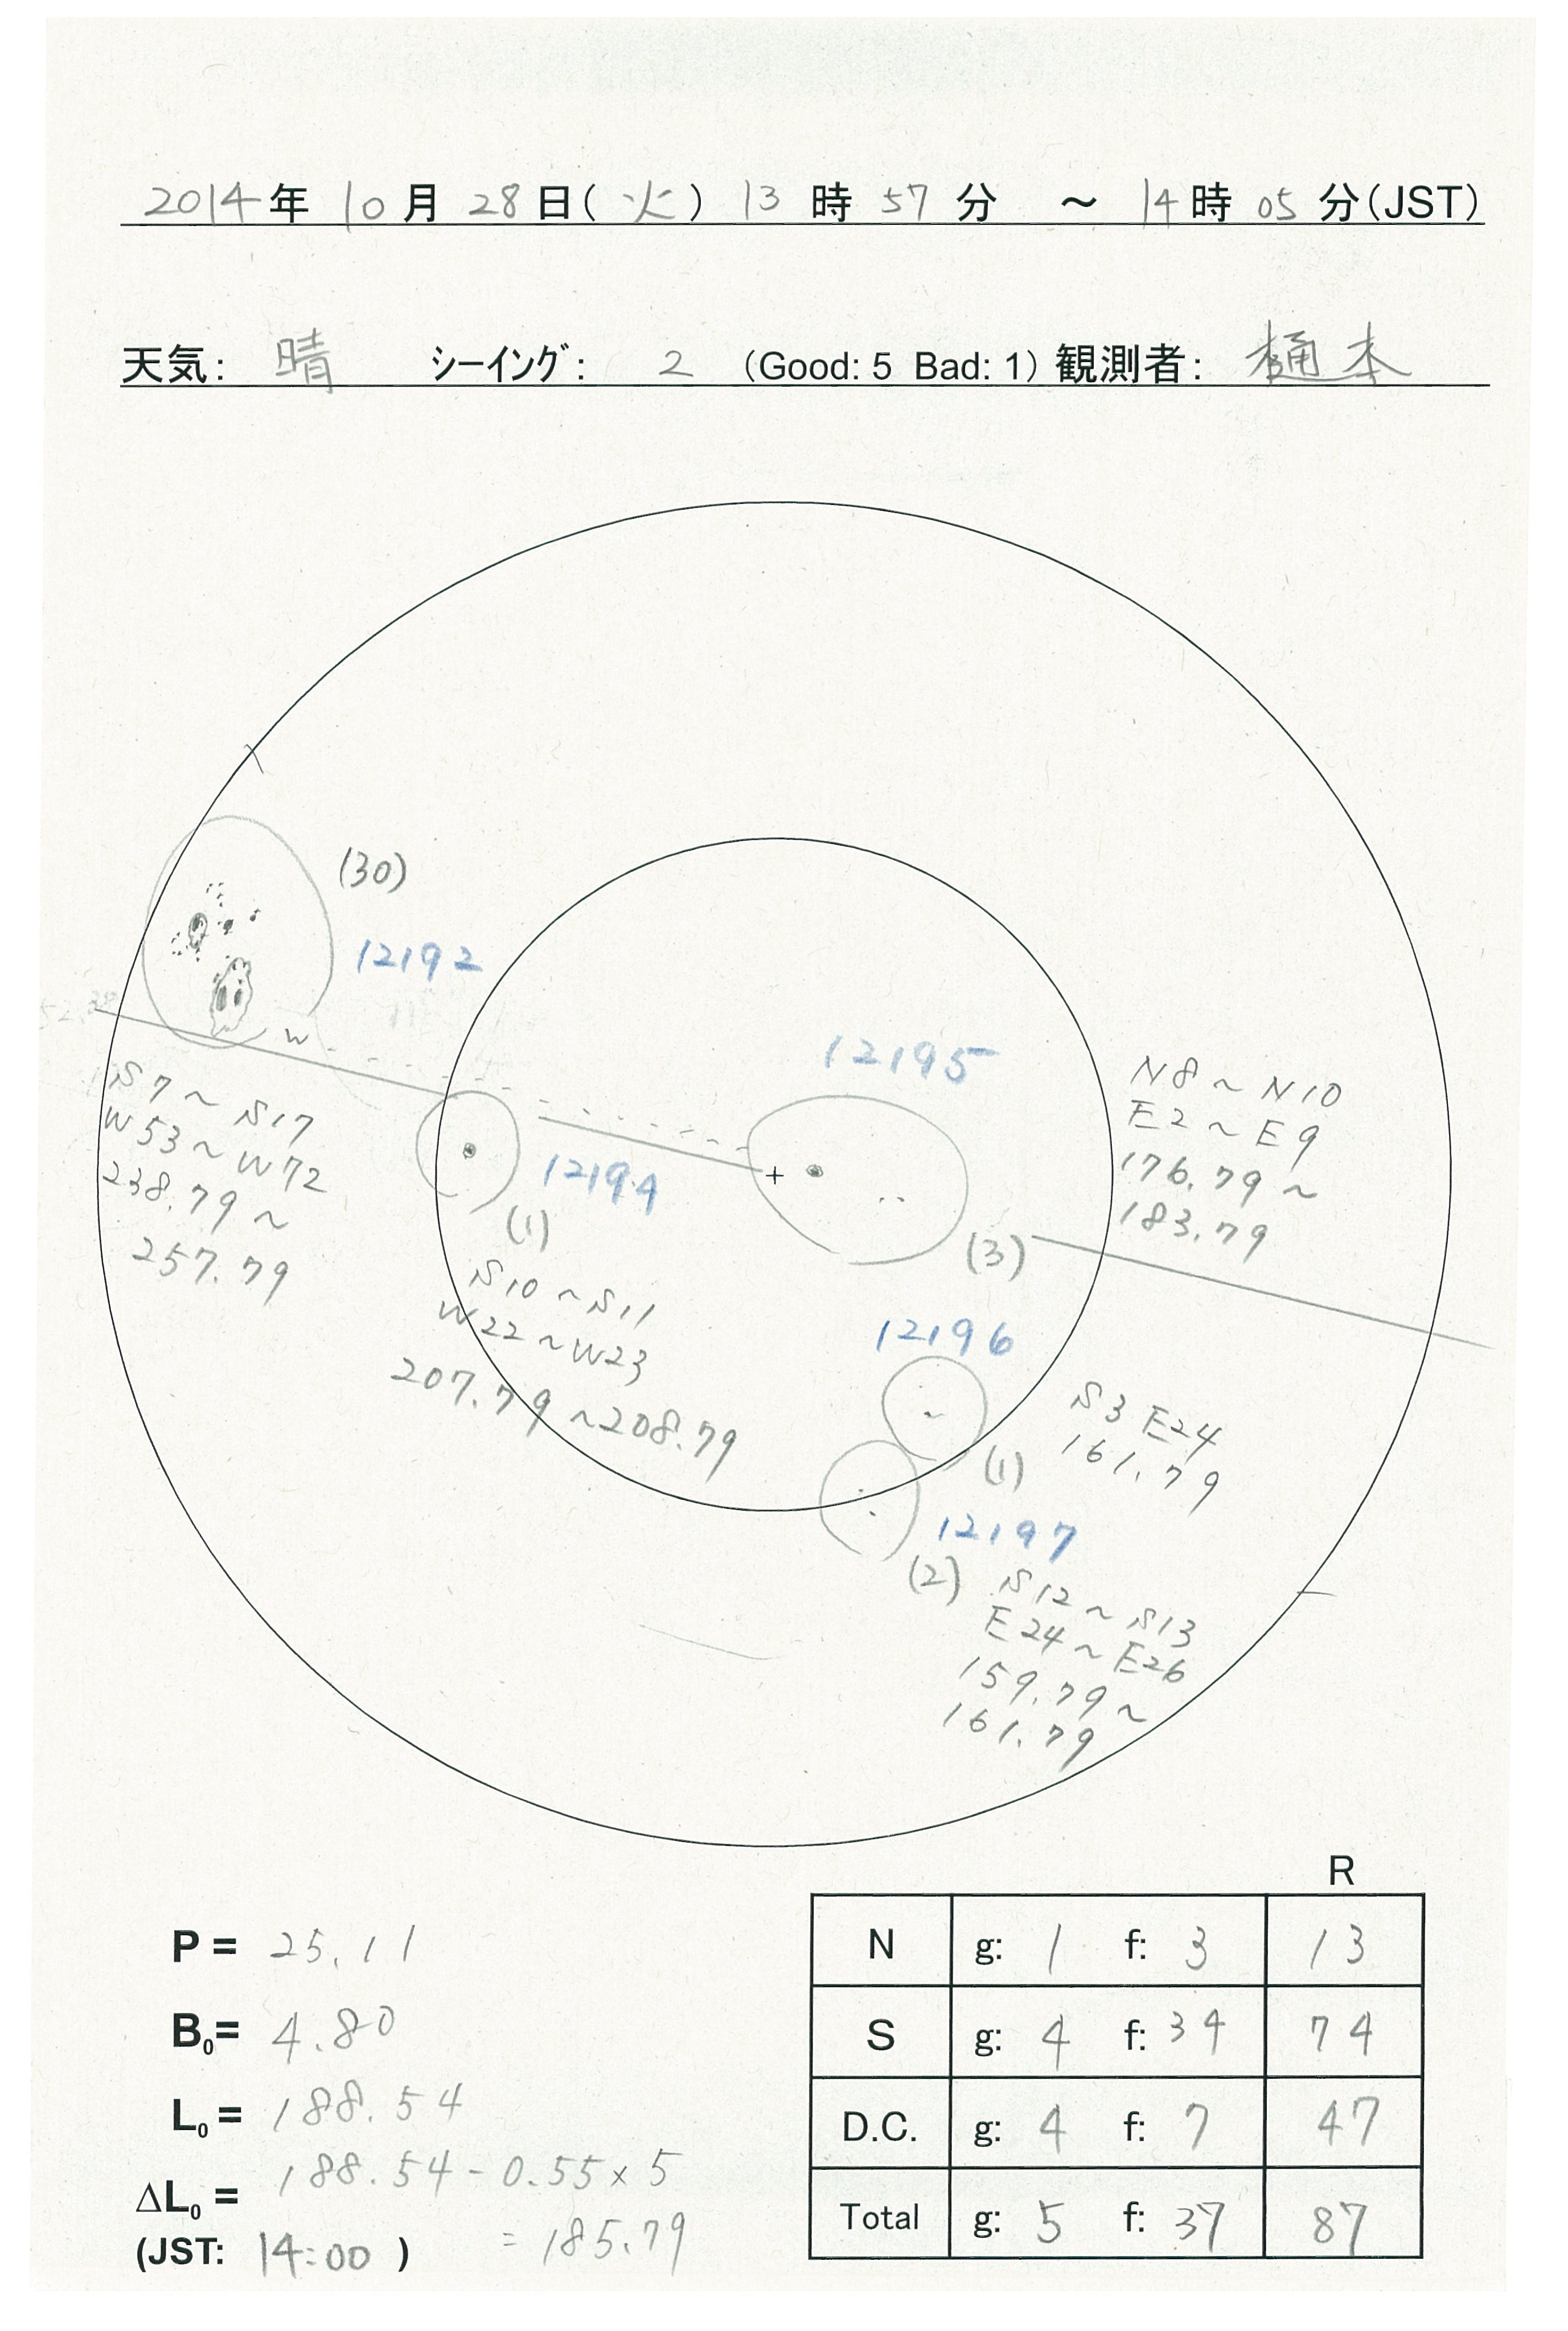 2014年 10月 28日(火) 13時 57分 ～ 14時 05分(JST)
天気: 晴 シーイング: 2 (Good: 5 Bad: 1) 観測者: 樋本
(30)
12192
W
S7～S17
W53～W72
238.79～
257.79
12194
(1)
S10～S11
W22～W23
207.79～208.79
12195
(3)
N8～N10
E2～E9
176.79～
183.79
12196
(1)
S3 E24
161.79
12197
(2)
S12～S13
E24～E26
159.79～
161.79
P = 25.11
B0= 4.80
L0= 188.54
ΔL0= 188.54 - 0.55×5
(JST: 14:00) = 185.79
R
N g: 1 f: 3 13
S g: 4 f: 34 74
D.C. g: 4 f: 7 47
Total g: 5 f: 37 87